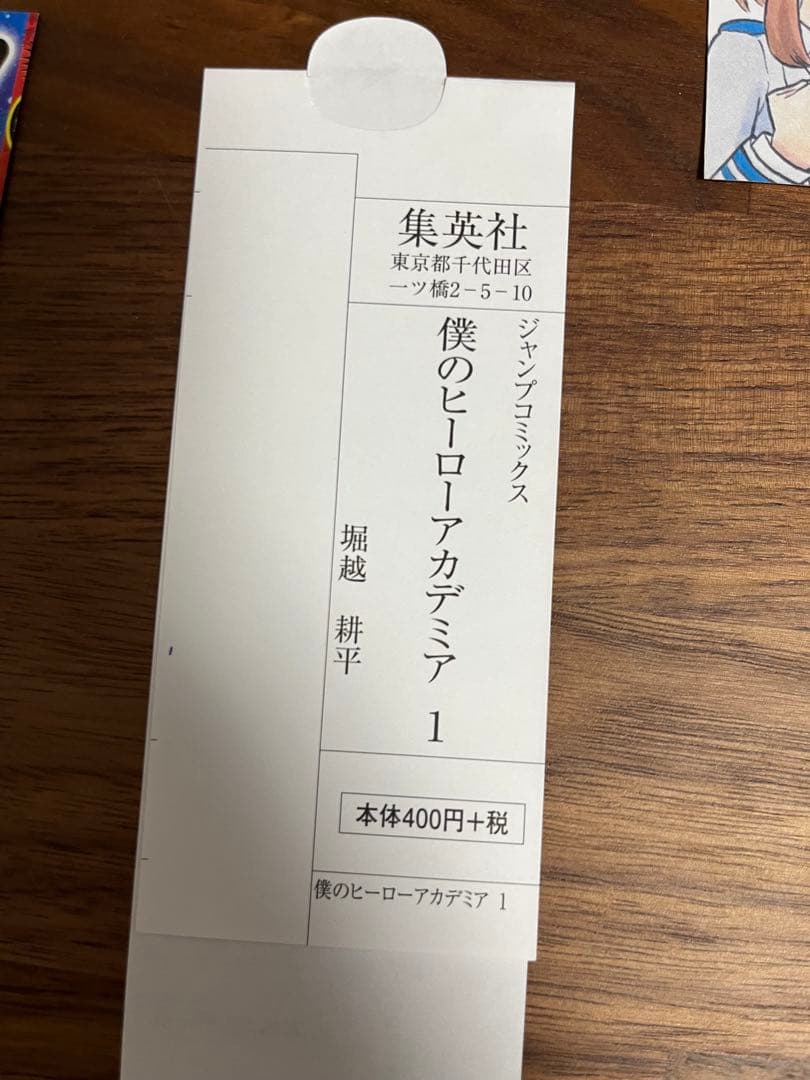 集英社
東京都千代田区
一ツ橋2-5-10
ジャンプコミックス
僕のヒーローアカデミア 1
堀越 耕平
本体400円+税
僕のヒーローアカデミア 1